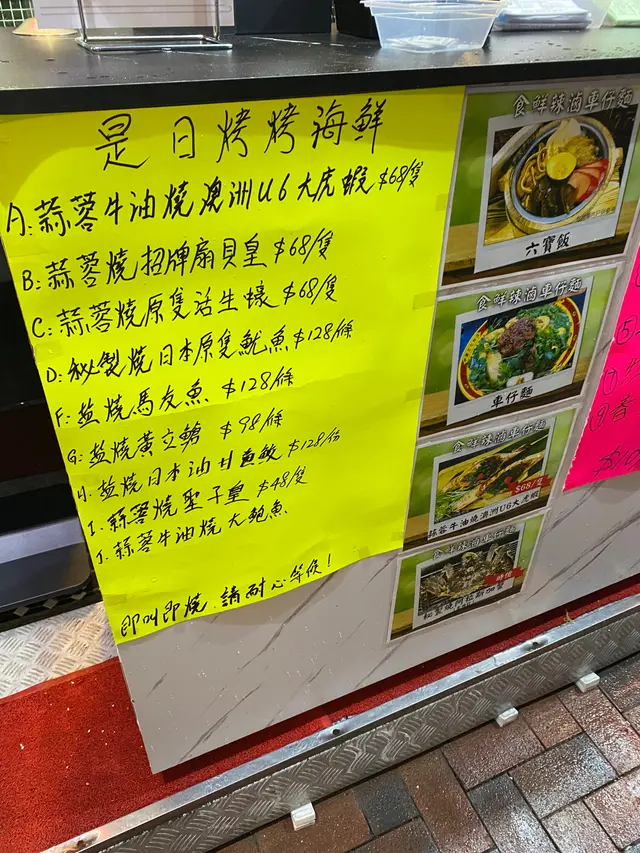 是日烤烤海鮮
A:蒜蓉牛油燒澳洲U6大虎蝦 $68/隻
B:蒜蓉燒招牌扇貝皇 $68/隻
C:蒜蓉燒原隻活生蠔 $68/隻
D:秘製燒日本原隻魷魚 $128/條
F:塩燒馬友魚 $128/條
G:塩燒黃立鯧 $98/條
H.塩燒日本油甘魚鮫 $128/份
I.蒜蓉燒聖子皇 $48/隻
J.蒜蓉牛油燒大鮑魚
即叫即燒.請耐心等候!
食鮮辣滷車仔麵
六寶飯
食鮮辣滷車仔麵
車仔麵
食鮮辣滷車仔麵
$68/隻
蒜蓉牛油燒澳洲U6大虎蝦
食鮮辣滷車仔麵
時價